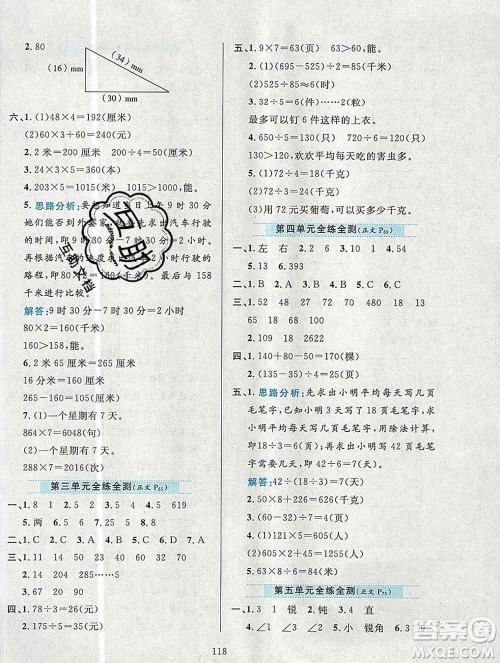 2. 80
(16) mm
(34) mm
(30) mm
六、1. (1)48×4=192(厘米)
(2)60×3+60=240(元)
2. 2 米=200 厘米　200÷4=50(厘米)
3. 24×3×5=360(本)
4. 203×5=1015(米)　1015>1000,能。
5. 思路分析:要
她们能否
时间,即9时30分
的速度求出汽车行驶
的路程,
千米比较。
解答:9 时 30 分-7 时 30 分=2 小时
80×2=160(千米)　160>
6. 2分40秒=160秒
16 分米=160 厘米
265-160=105(厘米)
7. (1)一个星期有 7 天。
864×7=6048(米)
(2)一个星期有 7 天。
288×7=2016(米)
第三单元全练全测(正文 P55)
一、1. 8　1　2. 5　3. 2　4. 5　619
5. 两　6. 5　7. 6　8. 0
二、1. C　2. C　3. A　4. B　5. A
三、1. 11　14　32　70　48　270
2. 14　204　285……2
3. 67　20　90
四、1. 78÷3=26(支)
2. 175÷5=35(元)
五、1. 9×7=63(页)　63>60,能。
2. (1)(695-525)÷2=85(千米)
(2)525÷(9-2)=75(千米)
3. 32÷5=6(件)……2(粒)
最多可以钉 6 件这样的上衣。
4. 650÷5=130(只)　720÷6=120(只)
130>120,欢欢平均每天吃的害虫多。
5. (1)72÷6×8=96(元)
(2)72÷9=8(千克)
(3)用 72 元买葡萄,可以买多少千克。
第四单元全练全测
一、1. 左　右　2. 2　6　3. 10　1　4. 54
5. 13　6. 393
二、1. B　2. A　3. C　4. C　5. A
三、1. 13　32　48　9　52　17
2. 59　18　628　16　182　37
四、1. 140+80-50=170(棵)
2. (160-110)×5=250(元)
五、1. 思路分析:先求出小明平均每天写几页
毛笔字,由“小明 3 天写了 18 页毛笔字”可
知,小明平均每天写 18÷3=6(页)毛笔字。
再求出小明要写 42 页毛笔字,按这样的速
度需要写几天。
解答:42÷(18÷3)=7(天)
2. 56÷(2×4)=7(千克)
3. (1)240×6÷9=160(千克)
(2)(240+10)×6=1500(千克)
4. (1)(1200-360)÷7=120(米)
(2)252÷9×3=84(米)
第五单元全练全测
一、1. 3　1　锐　2. 钝　3. 4　直
4. ∠1　∠3　5. 小　锐角　6. 3　9
118